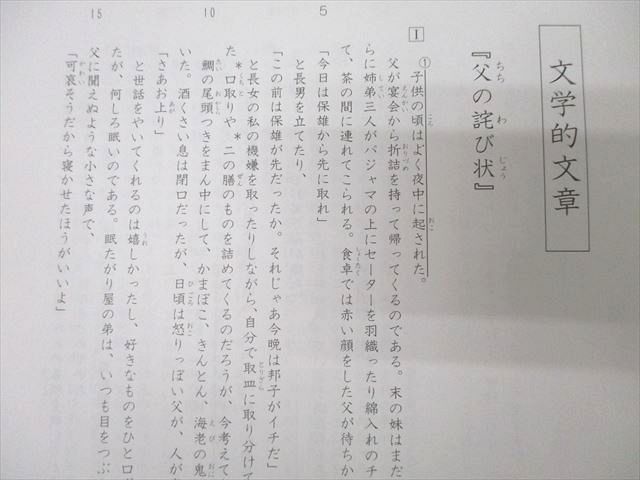 文学的文章
『父の詫び状』
ちち わ じょう
Ⅰ
①子供の頃はよく夜中に起された。
ころ おこ
父が宴会から折詰を持って帰ってくるのである。末の妹はまだ
えんかい おりづめ
らに姉弟三人がパジャマの上にセーターを羽織ったり綿入れのチ
て、茶の間に連れてこられる。食卓では赤い顔をした父が待ちか
しょくたく
「今日は保雄から先に取れ」
5
と長男を立てたり、
「この前は保雄が先だったか。それじゃあ今晩は邦子がイチだ」
と長女の私の機嫌を取ったりしながら、自分で取皿に取り分けて
とりざら
＊口取りや＊二の膳のものを詰めてくるのだろうが、今考えて
くちと ぜん
鯛の尾頭つきをまん中にして、かまぼこ、きんとん、海老の鬼
たい おかしら えび おに
10
いた。酒くさい息は閉口だったが、日頃は怒りっぽい父が、人が
ひごろ おこ
「さあお上り」
あが
と世話をやいてくれるのは嬉しかったし、好きなものをひと口
うれ
たが、何しろ眠いのである。眠たがり屋の弟は、いつも目をつぶ
父に聞えぬような小さな声で、
15
「可哀そうだから寝かせたほうがいいよ」
かわい